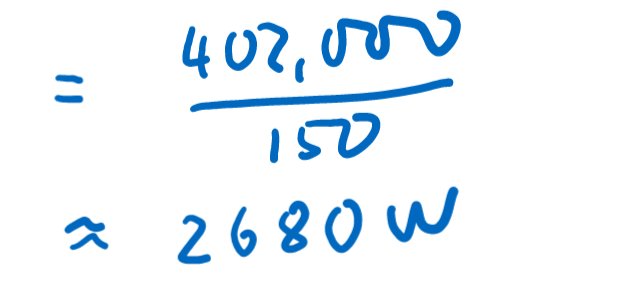 = 402,000
150
≈ 2680 W